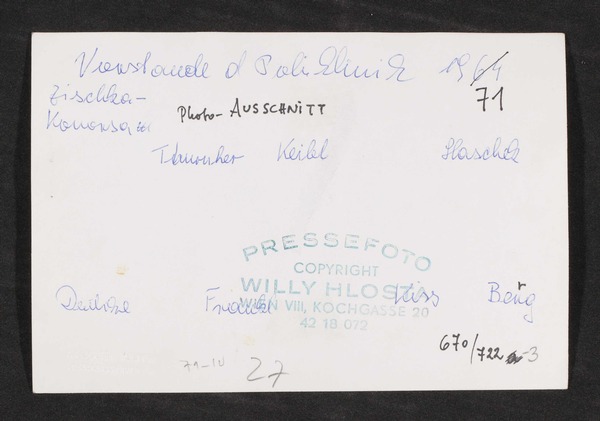 Vorstände d Poliklinik 1964
71
Zischka-
Konorsa
Photo-AUSSCHNITT
Thurnher Keibl Haschek
PRESSEFOTO
COPYRIGHT
WILLY HLOSTA
WIEN VIII, KOCHGASSE 20
42 18 072
Frankl Berg
670/722 3
71-IV 27